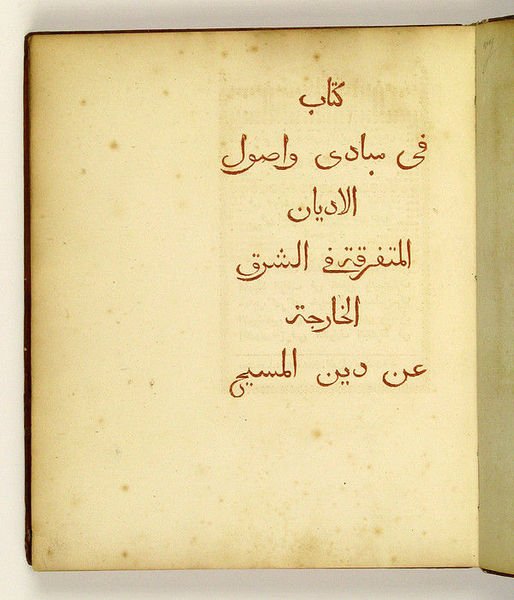 كتاب
في مبادى واصول
الاديان
المتفرقة في الشرق
الخارجة
عن دين المسيح